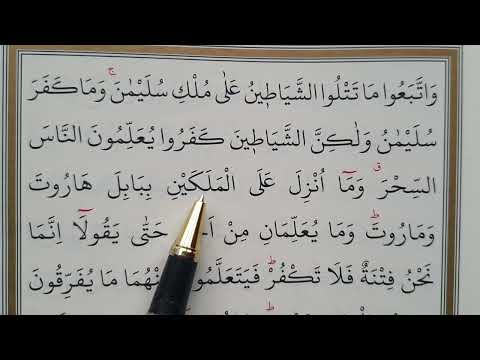 وَاتَّبَعُوا مَا تَتْلُوا الشَّيَاطٖينُ عَلٰى مُلْكِ سُلَيْمٰنَۚ وَمَا كَفَرَ
سُلَيْمٰنُ وَلٰكِنَّ الشَّيَاطٖينَ كَفَرُوا يُعَلِّمُونَ النَّاسَ
السِّحْرَۗ وَمَٓا اُنْزِلَ عَلَى الْمَلَكَيْنِ بِبَابِلَ هَارُوتَ
وَمَارُوتَؕ وَمَا يُعَلِّمَانِ مِنْ حَتّٰى يَقُولَٓا اِنَّمَا
نَحْنُ فِتْنَةٌ فَلَا تَكْفُرْؕ فَيَتَعَلَّمُونَ مَا يُفَرِّقُونَ